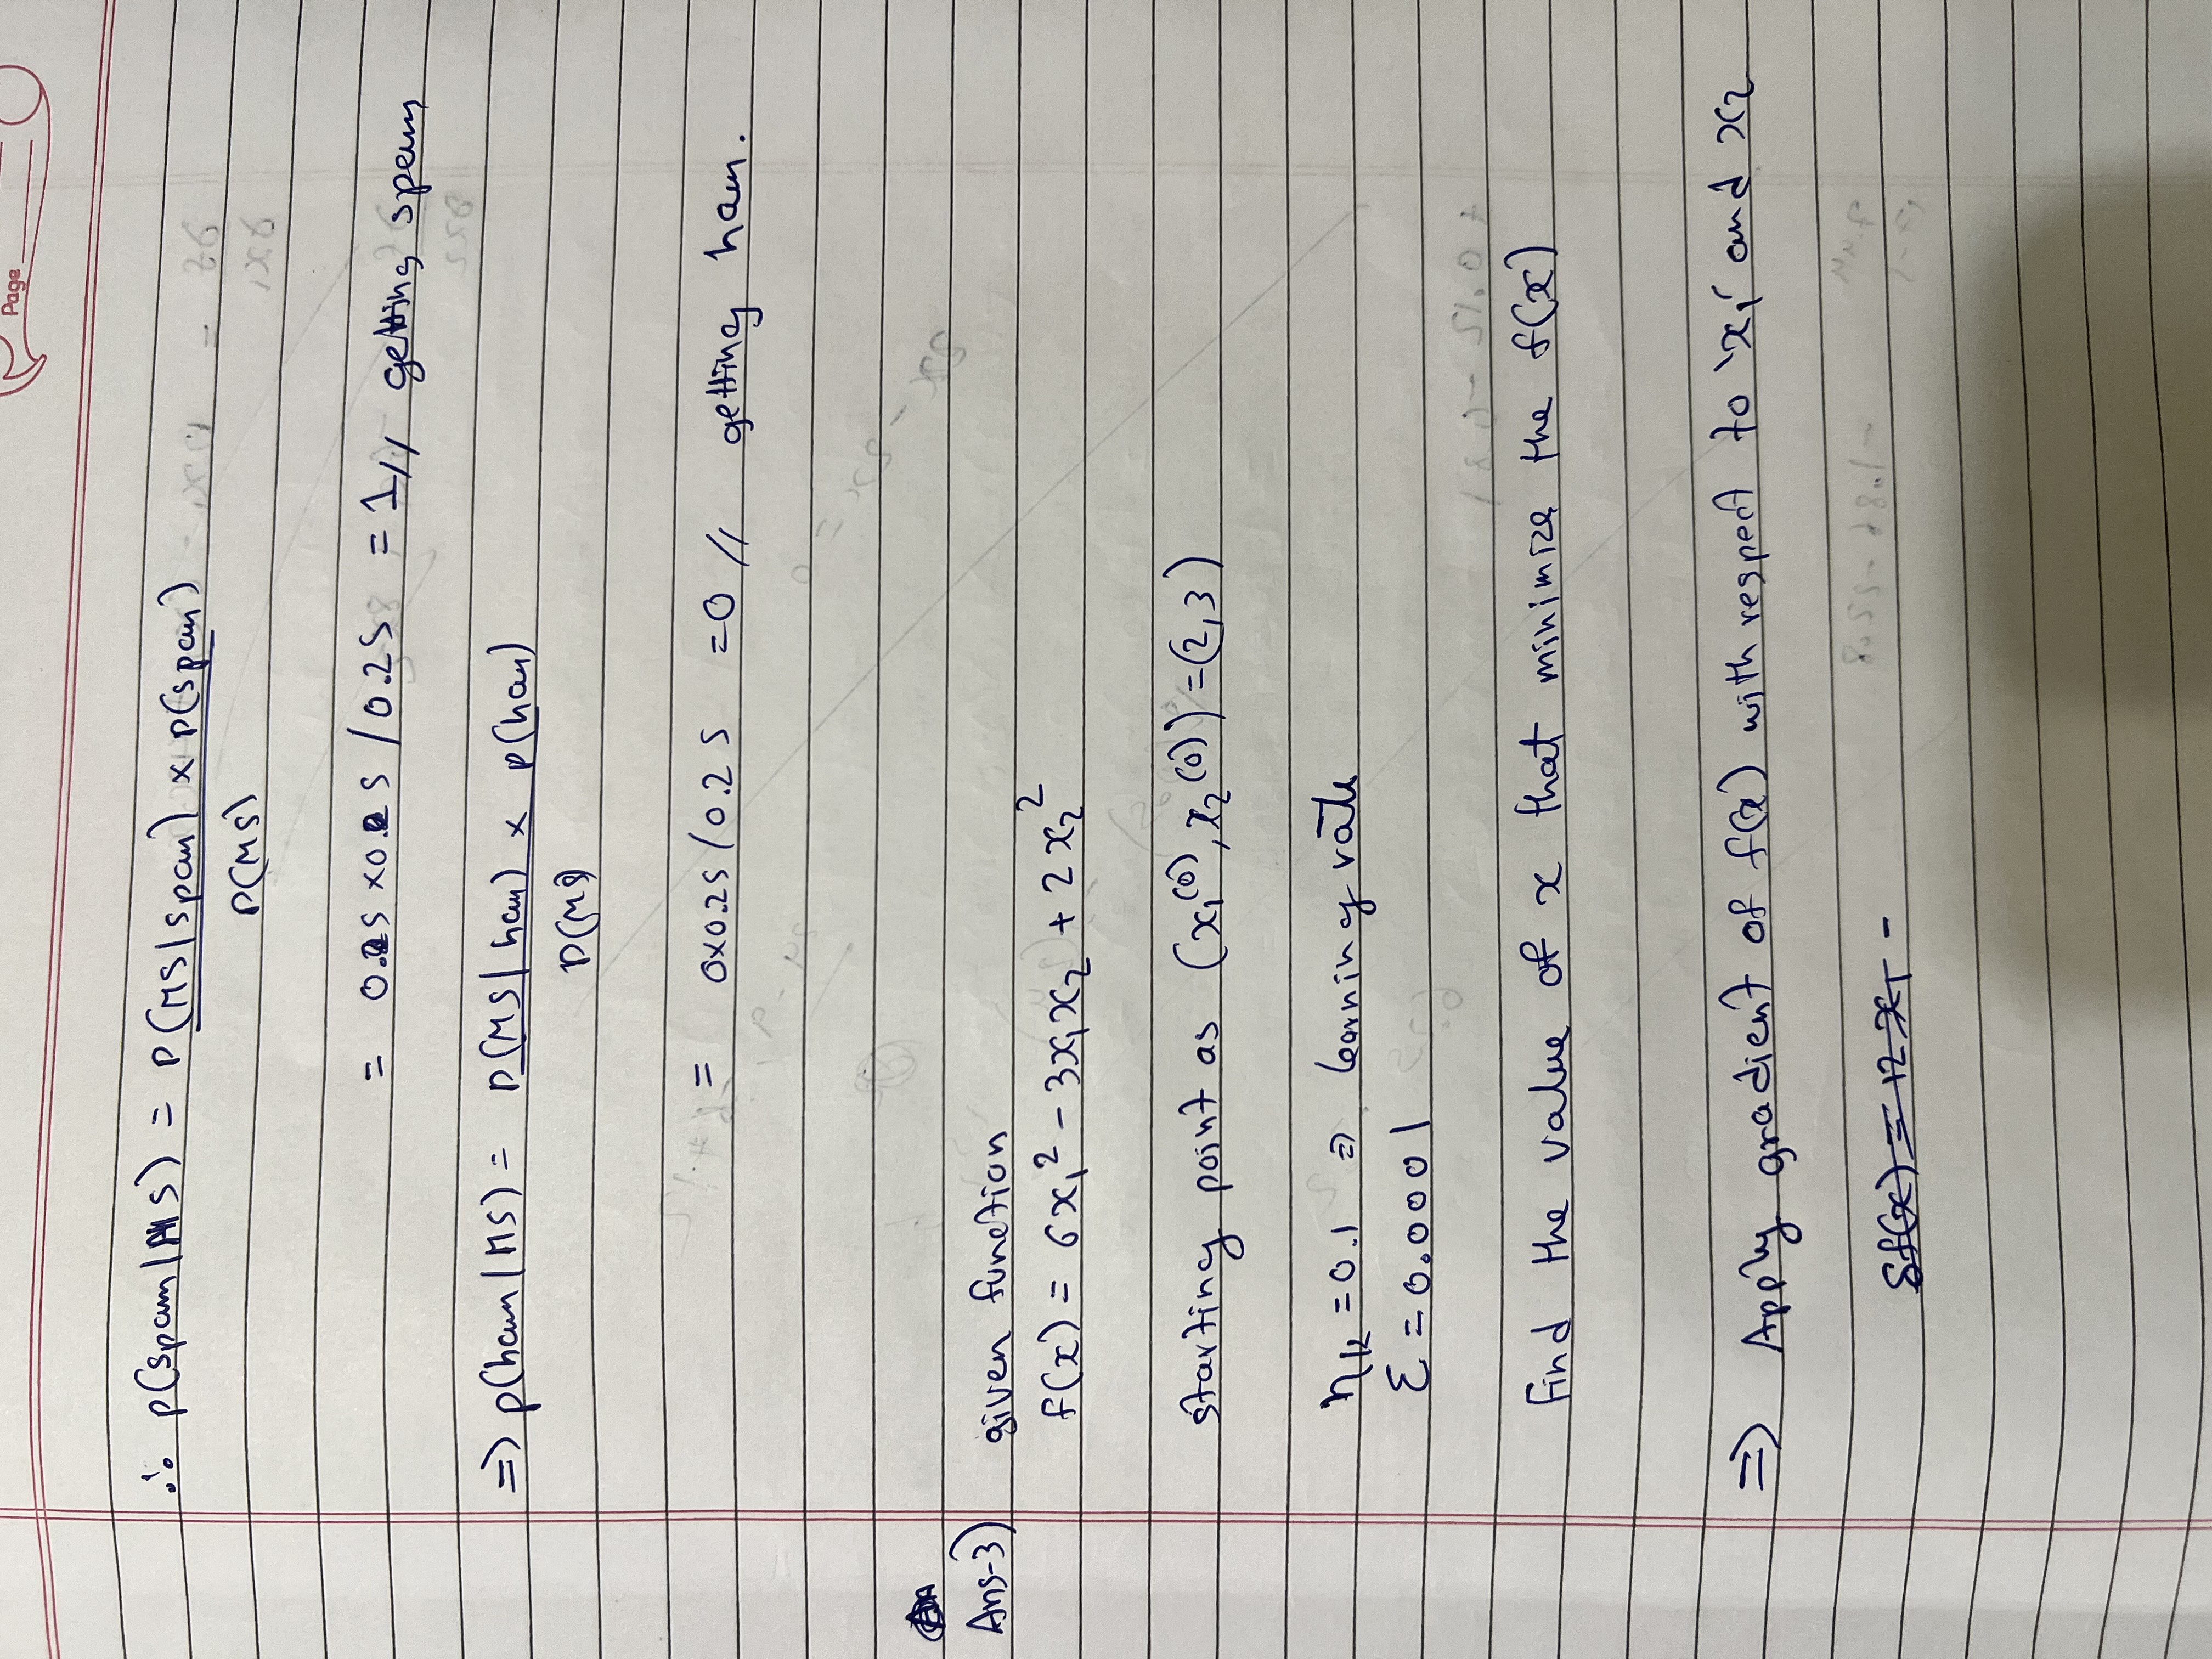 Page
∴ P(spam/MS) = P(MS/spam) × P(spam)
P(MS)
= 0.5 × 0.5 / 0.25 = 1 // getting spam
=> P(ham/MS) = P(MS/ham) × P(ham)
P(MS)
= 0×0.25/0.25 = 0 // getting ham.
Ans-3) given function
f(x) = 6x₁² - 3x₁x₂ + 2x₂²
starting point as (x₁⁽⁰⁾, x₂⁽⁰⁾) = (2,3)
ηk = 0.1 => learning rate
Ɛ = 0.0001
find the value of x that minimize the f(x)
=> Apply gradient of f(x) with respect to 'x₁' and x₂
δf(x) = 12x₁ -